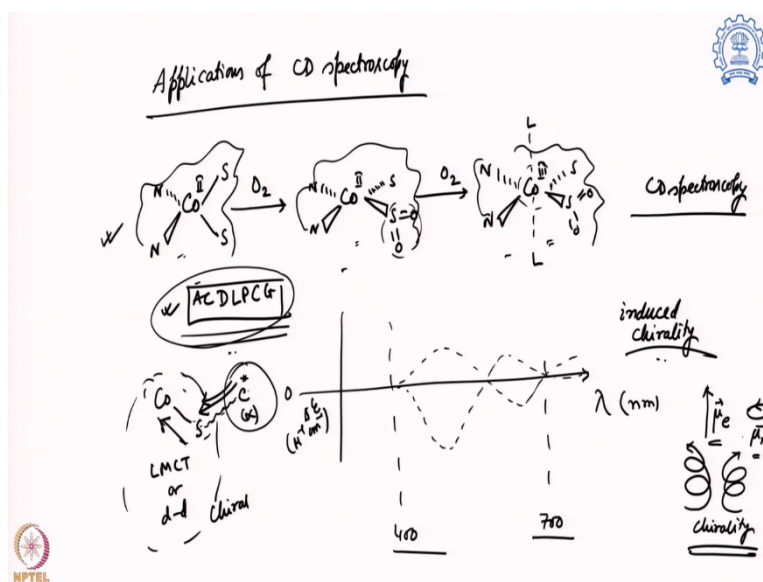 Applications of CD spectroscopy
N N Co II S S O2 N N Co II S S O O O2 L N N Co III S S O O L
CD spectroscopy
ACDLPCG
induced chirality
Co S C* (α)
LMCT
or
d-d
Chiral
0
Δε
(M⁻¹ cm⁻¹)
λ (nm)
400
700
μe
chirality
NPTEL